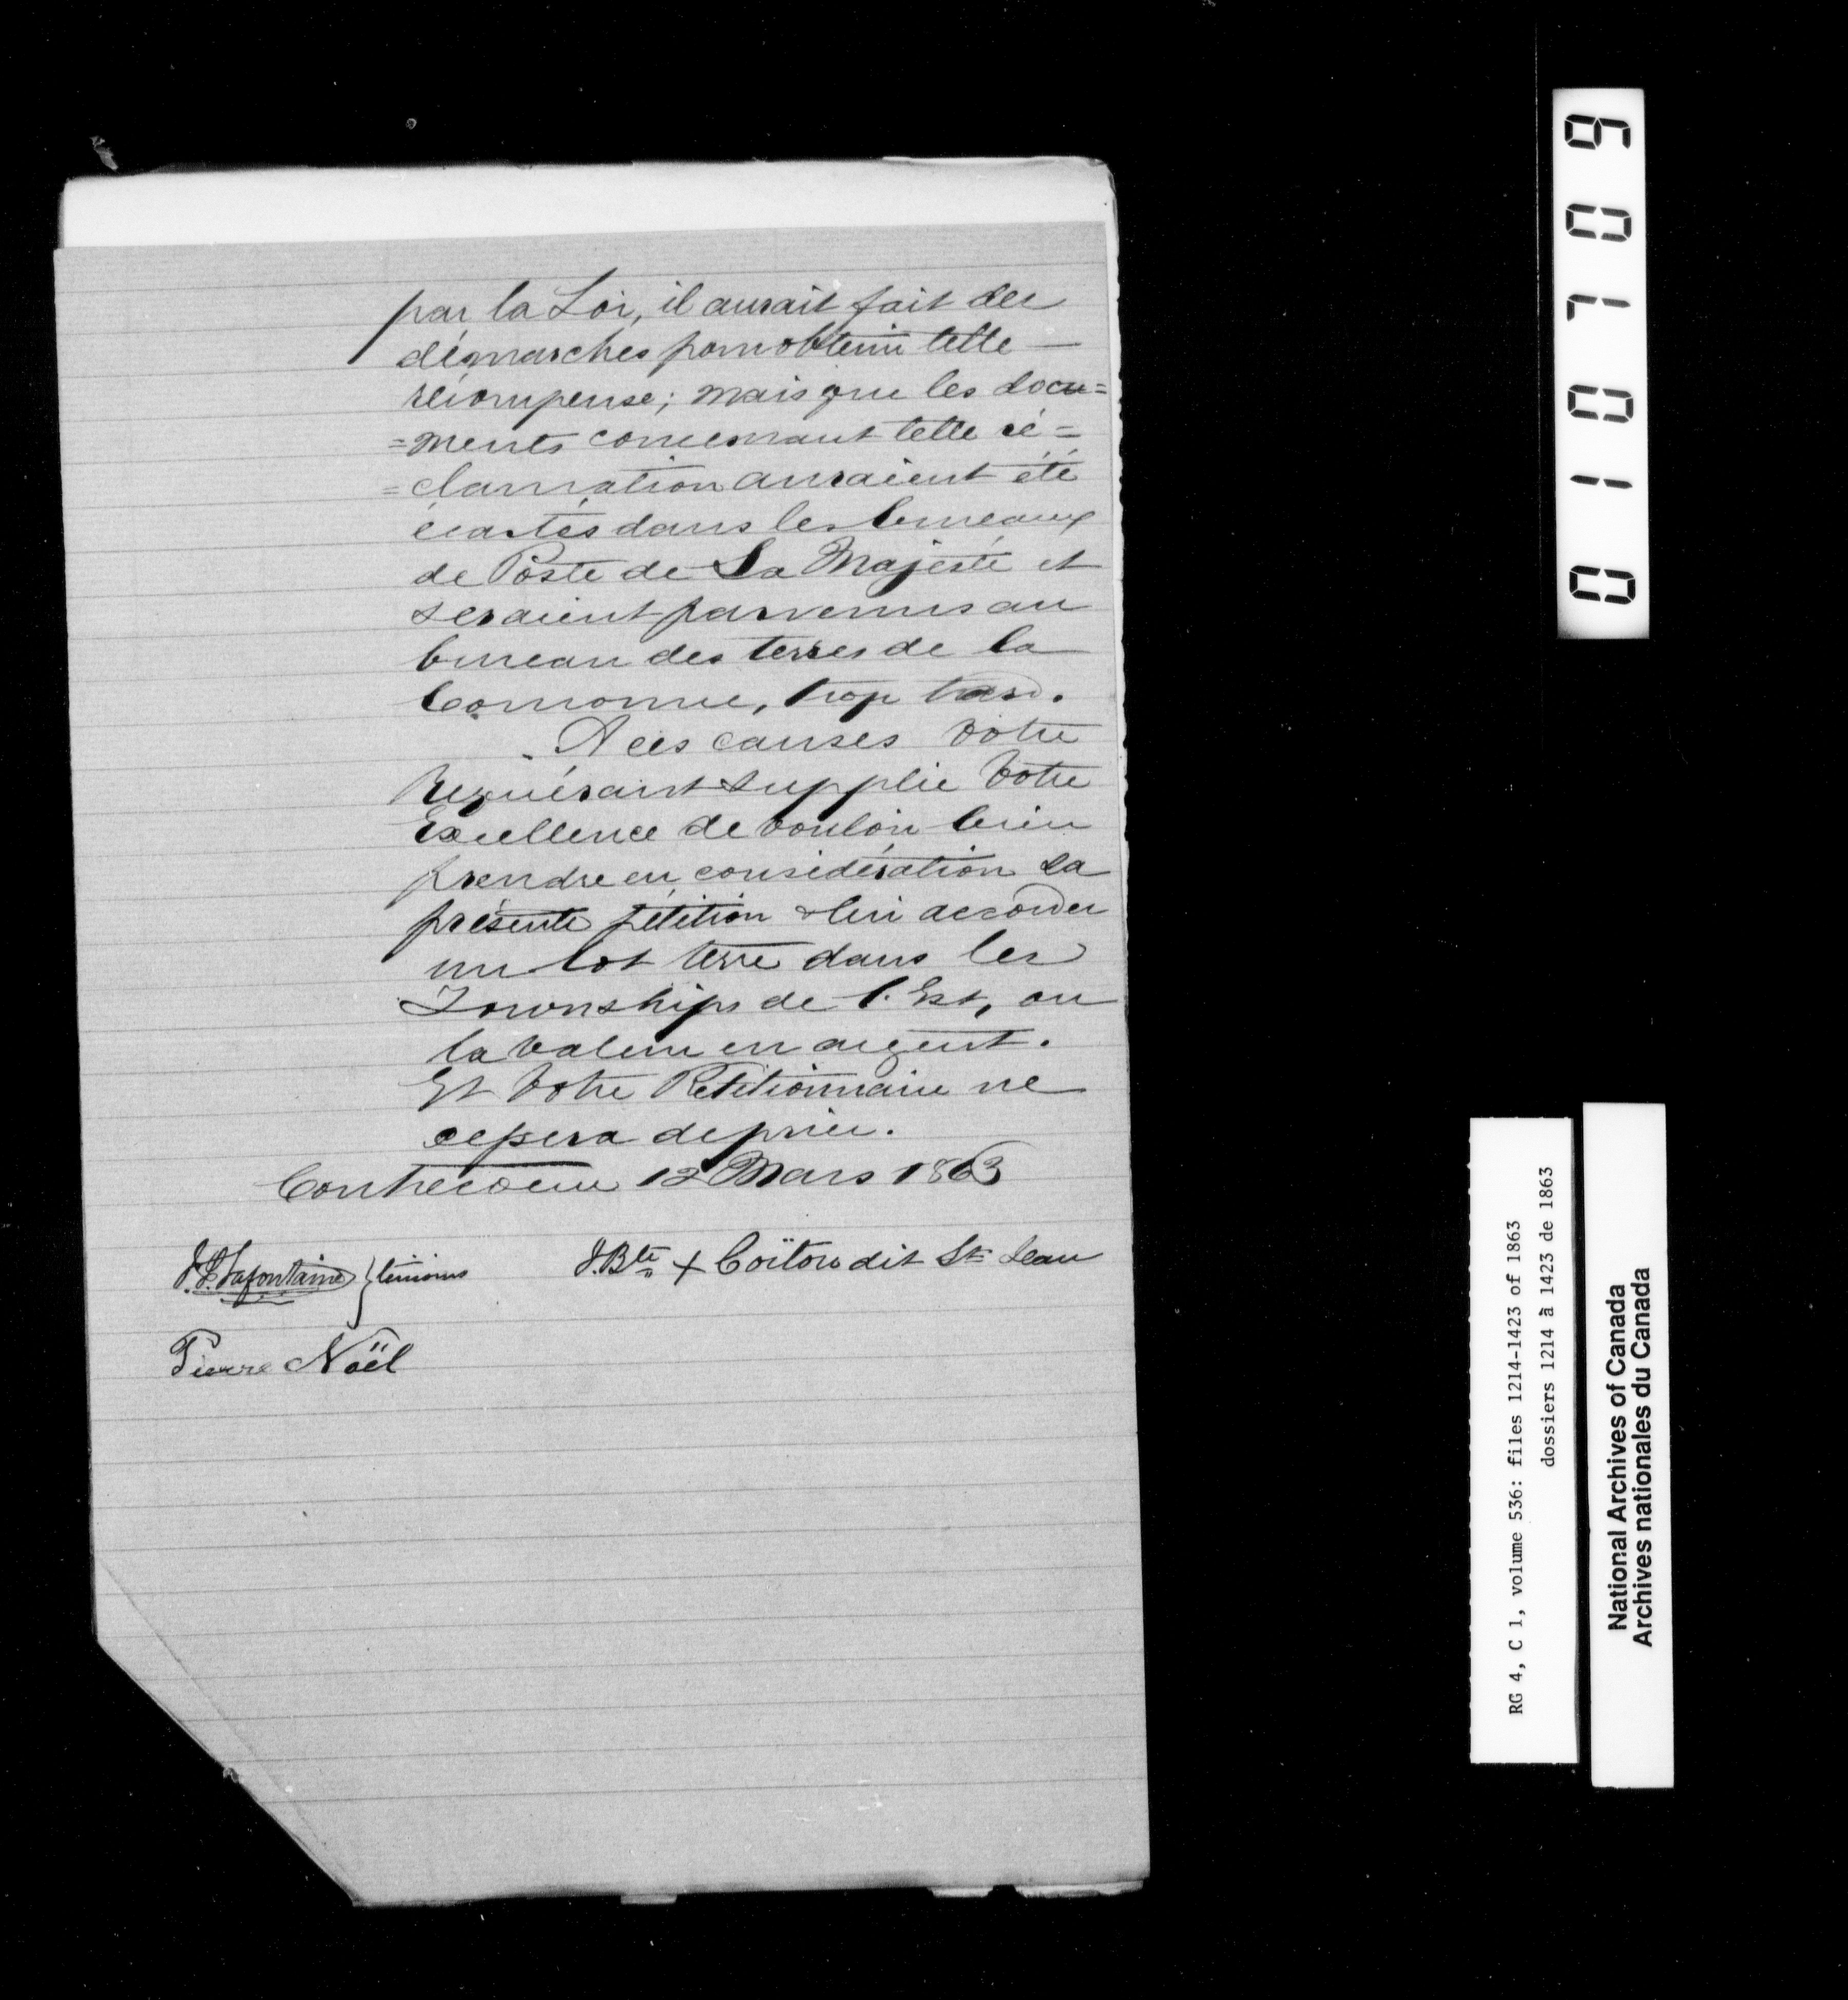 par la Loi, il aurait fait des
démarches pour obtenir telle —
récompense; mais que les docu=
=ments concernant telle ré=
=clamation auraient été
écartés dans les bureaux
de Poste de Sa Majesté et
seraient parvenus au
bureau des terres de la
Couronne, trop tard.
A ces causes Votre
Requérant supplie Votre
Excellence de vouloir bien
prendre en considération sa
présente pétition & lui accorder
un lot terre dans les
Townships de l'Est, ou
la valeur en argent.
Et Votre Petitionnaire ne
cessera de prier.
Contrecoeur 12 Mars 1863
J. Bte + Coïtou dit St Jean
Lafontaine } témoins
Pierre Noël
010709
RG 4, C 1, volume 536: files 1214-1423 of 1863
dossiers 1214 à 1423 de 1863
National Archives of Canada
Archives nationales du Canada